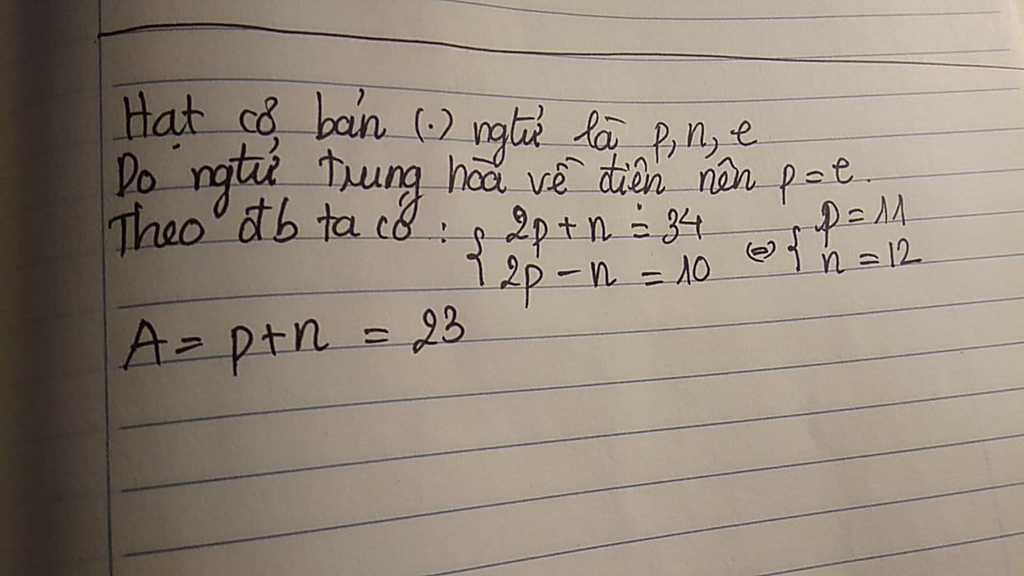 Hạt cơ bản (.) ngtử là p, n, e
Do ngtử trung hoà về điện nên p = e.
Theo đb ta có : { 2p + n = 34 ⇔ { p = 11
{ 2p - n = 10 { n = 12
A = p + n = 23